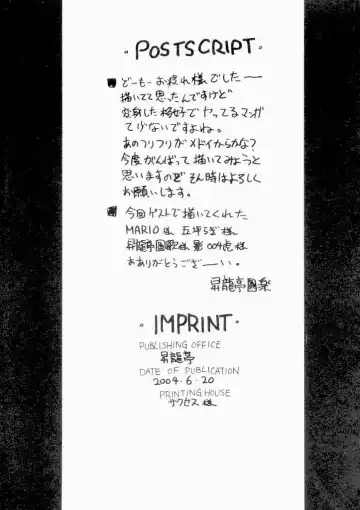 ・POSTSCRIPT・
■どーもーお疲れ様でしたー
描いてて思ったんですけど
変身した格好でヤッてるマンガ
て少ないですよね。
あのフリフリがメドイからかな?
今度がんばって描いてみようと
思いますのでそん時はよろしく
お願いします。
■今回ゲストで描いてくれた
MARIO様 五坪らぎ様
昇龍亭圓歌様 影004虎様
おありがとうござーい。
昇龍亭圓楽
・IMPRINT・
PUBLISHING OFFICE
昇龍亭
DATE OF PUBLICATION
2004・6・20
PRINTING HOUSE
サクセス様